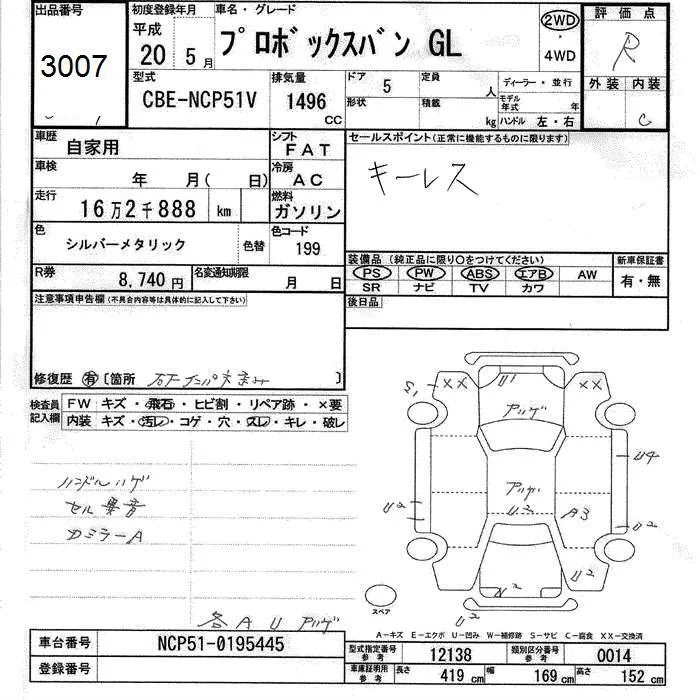 出品番号
3007
初度登録年月
平成
20 5月
車名・グレード
プロボックスバン GL
2WD
・
4WD
評価点
R
型式
CBE-NCP51V
排気量
1496
CC
ドア 5
定員 人
形状
積載 kg
ディーラー・並行
モデル年式 年
ハンドル 左・右
外装 内装
C
車歴
自家用
シフト
FAT
車検
年 月( 日)
冷房
AC
走行
16万2千888 km
燃料
ガソリン
色
シルバーメタリック
色替
色コード
199
R券
8,740円
名変通知期限
月 日
セールスポイント(正常に機能するものに限ります)
キーレス
装備品(純正品に限り○をつけてください)
PS PW ABS エアB AW
SR ナビ TV カワ
新車保証書
有・無
後日品
注意事項申告欄(不具合内容等は具体的に記入して下さい)
修復歴 有〔箇所 〕
検査員記入欄
FW キズ・飛石・ヒビ割・リペア跡・×要
内装 キズ・汚レ・コゲ・穴・スレ・キレ・破レ
ハンドルハゲ
セル異音
DミラーA
各 A U アリゲ
XX
XX
U1
アリゲ
U4
U2
アリゲ
U2
A3
U2
U2
U2
スペア
A-キズ E-エクボ U-凹み W-補修跡 S-サビ C-腐食 XX-交換済
車台番号
NCP51-0195445
登録番号
型式指定番号
参考
12138
類別区分番号
参考
0014
車庫証明用
参考
長さ 419 cm
幅 169 cm
高さ 152 cm